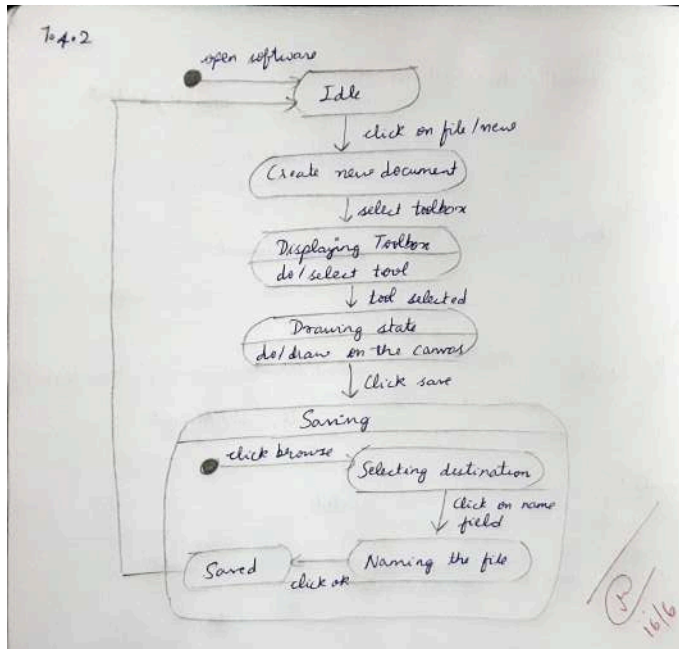 7.4.2
open software
Idle
click on file/new
Create new document
select toolbox
Displaying Toolbox
do/select tool
tool selected
Drawing state
do/draw on the canvas
Click save
Saving
click browse
Selecting destination
Click on name
field
Naming the file
click ok
Saved
16/6